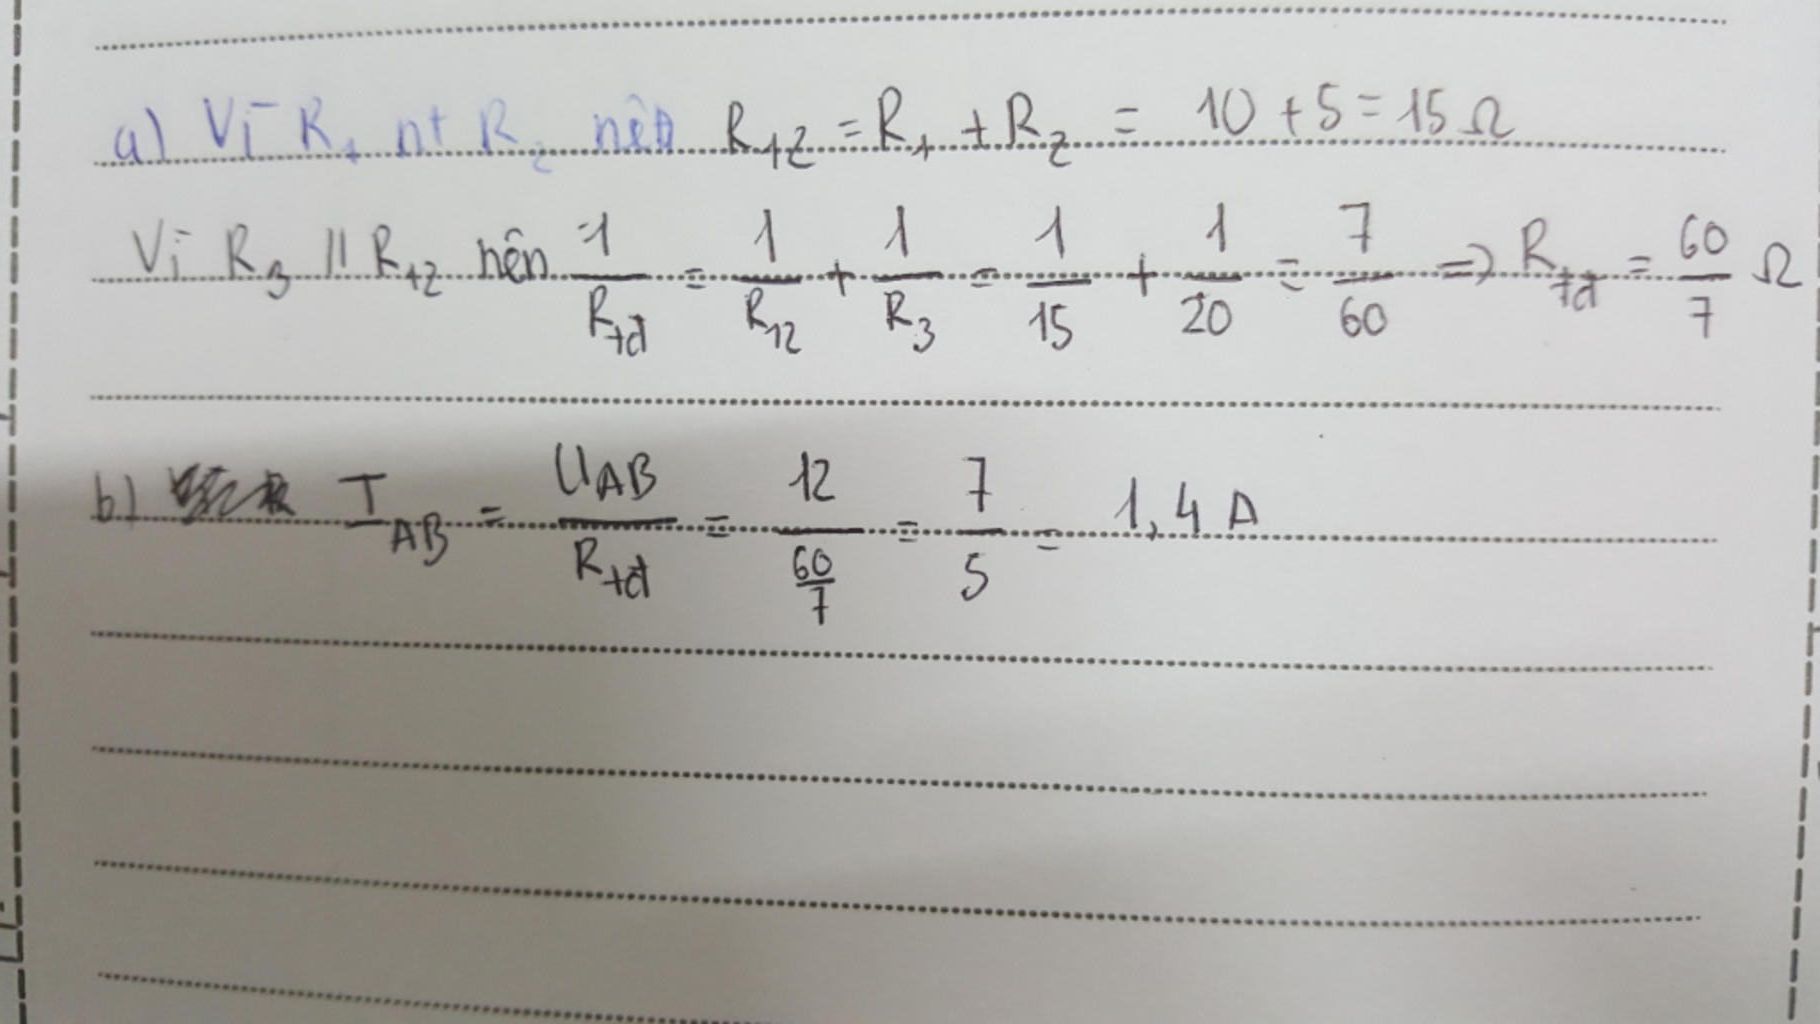 a) Vì R₁ nt R₂ nên R₁₂ = R₁ + R₂ = 10 + 5 = 15 Ω
Vì R₃ // R₁₂ nên 1/R_tđ = 1/R₁₂ + 1/R₃ = 1/15 + 1/20 = 7/60 => R_tđ = 60/7 Ω
b) I_AB = U_AB/R_tđ = 12/(60/7) = 7/5 = 1,4 A